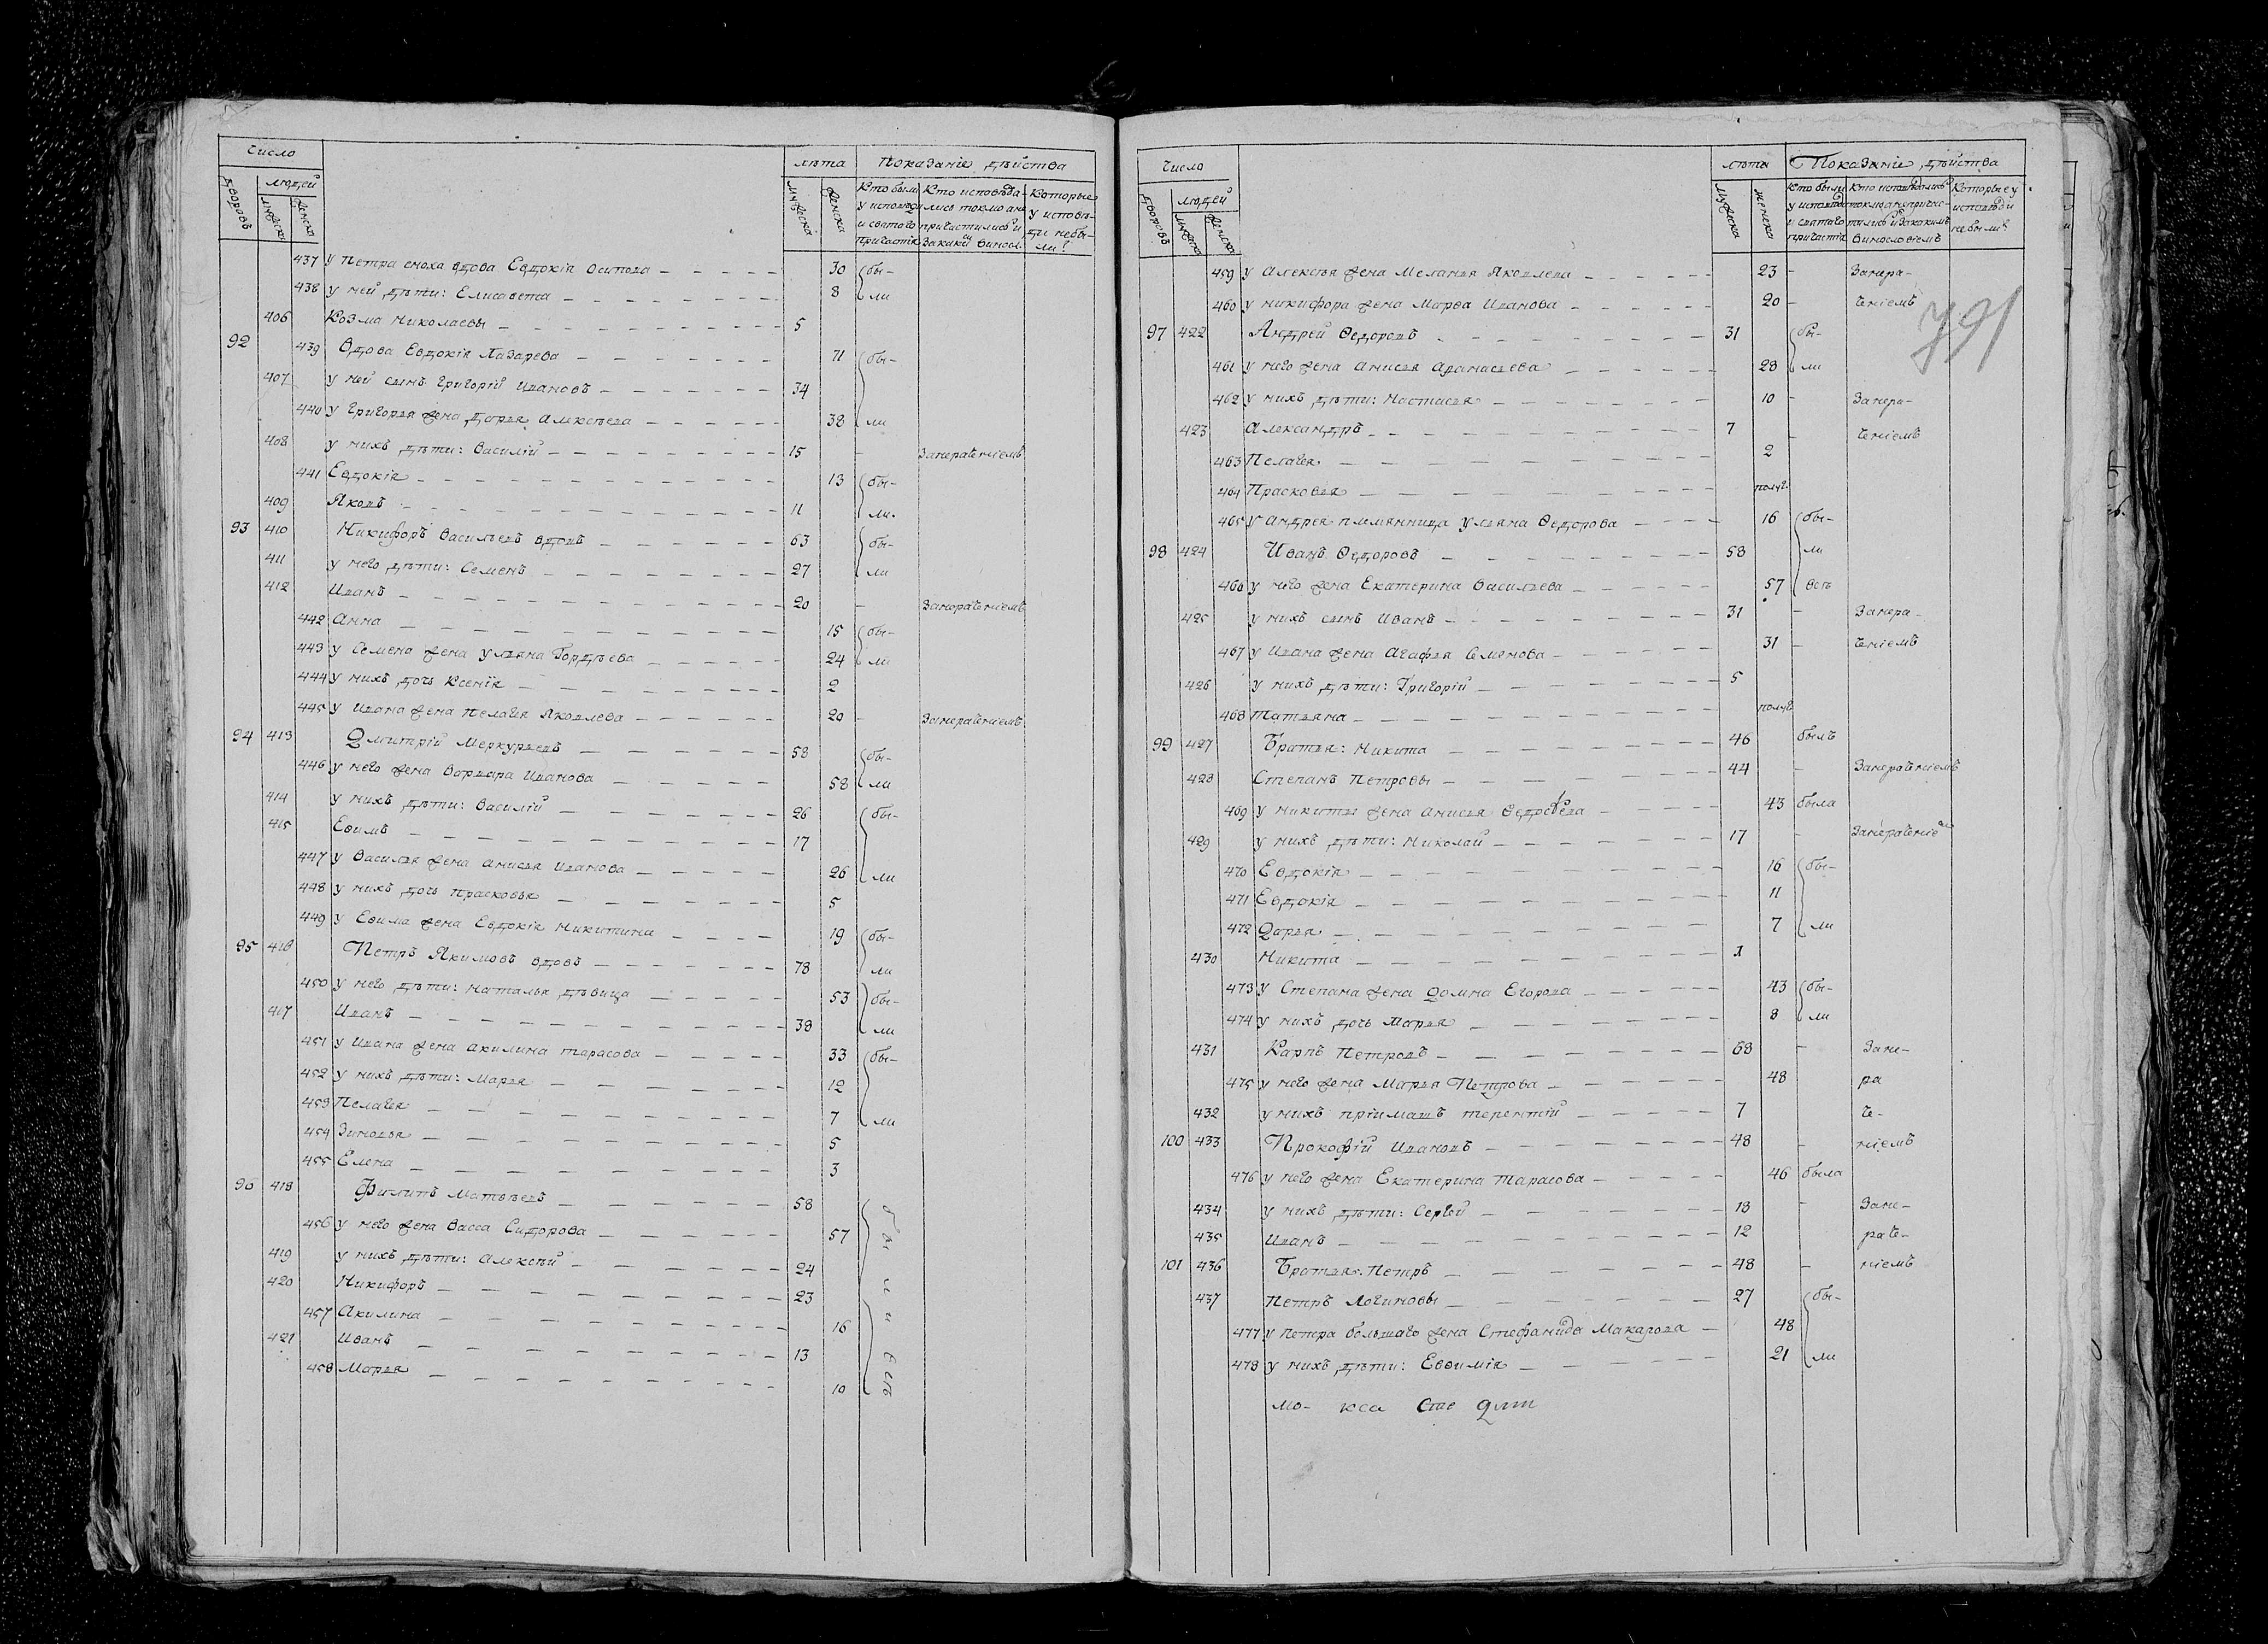 Число
лѣта Показаніе дѣйства
дворовъ людей мужеска женска
мужеска женска
Кто были у исповѣди и святаго причастія
Кто исповѣдались токмо а не причастились и за какимъ виносл.
Которые у исповѣди не были?
437 у Петра сноха вдова Евдокія Осипова 30 бы-
438 у ней дѣти: Елисавета 8 ли
406 Козма Николаевы 5
92 439 Вдова Евдокія Лазарева 71 бы-
407 у ней сынъ Григорій Ивановъ 34
440 у Григорья жена Дарья Алексѣева 38 ли
408 у нихъ дѣти: Василій 15 - Занераченіемъ
441 Евдокія 13 бы-
409 Яковъ 11 ли.
93 410 Никифоръ Васильевъ вдовъ 63 бы-
411 у него дѣти: Семенъ 27 ли
412 Иванъ 20 - Занераченіемъ
442 Анна 15 бы-
443 у Семена жена Ульяна Гордѣева 24 ли
444 у нихъ дочь Ксенія 2
445 у Ивана жена Пелагея Яковлева 20 - Занераченіемъ
94 413 Дмитрій Меркурьевъ 58 бы-
446 у него жена Варвара Иванова 58 ли
414 у нихъ дѣти: Василій 26 бы-
415 Евѳимъ 17
447 у Василья жена Анисья Иванова 26 ли
448 у нихъ дочь Прасковья 5
449 у Евѳима жена Евдокія Никитина 19 бы-
95 416 Петръ Якимовъ вдовъ 78 ли
450 у него дѣти: Наталья дѣвица 53 бы-
417 Иванъ 38 ли
451 у Ивана жена Акилина Тарасова 33 бы-
452 у нихъ дѣти: Марья 12
453 Пелагея 7 ли
454 Зиновья 5
455 Елена 3
96 418 Филипъ Матвѣевъ 58
456 у него жена Васса Сидорова 57 бы
419 у нихъ дѣти: Алексѣй 24
420 Никифоръ 23 ли
457 Акилина 16
421 Иванъ 13
458 Марья 10
Число
лѣта Показаніе дѣйства
дворовъ людей мужеска женска
мужеска женска
Кто были у исповѣди и святаго причастія
Кто исповѣдались токмо а не причастились и за какимъ винословіемъ
Которые у исповѣди не были?
791
459 у Алексѣя жена Меланья Яковлева 23 - Занера-
460 у Никифора жена Марѳа Иванова 20 - ченіемъ
97 422 Андрей Ѳедоровъ 31 бы-
461 у него жена Анисья Аѳанасьева 28 ли
462 у нихъ дѣти: Настасья 10 - Занера-
423 Александръ 7 - ченіемъ
463 Пелагея 2
464 Прасковья полуг.
465 у Андрея племянница Ульяна Ѳедорова 16 бы-
98 424 Иванъ Ѳедоровъ 58 ли
466 у него жена Екатерина Васильева 57 всѣ
425 у нихъ сынъ Иванъ 31 - Занера-
467 у Ивана жена Агафья Семенова 31 - ченіемъ
426 у нихъ дѣти: Григорій 5
468 Татьяна полуг
99 427 Братья: Никита 46 былъ
428 Степанъ Петровы 44 - Занераченіемъ
469 у Никиты жена Анисья Ѳедорова 43 была
429 у нихъ дѣти: Николай 17 - Занераченіемъ
470 Евдокія 16 бы-
471 Евдокія 11
472 Дарья 7 ли
430 Никита 1
473 у Степана жена Домна Егорова 43 бы-
474 у нихъ дочь Марья 8 ли
431 Карпъ Петровъ 68 - Зане-
475 у него жена Марья Петрова 48 ра
432 у нихъ пріимашъ Терентій 7 че-
100 433 Прокофій Ивановъ 48 - ніемъ
476 у него жена Екатерина Тарасова 46 была
434 у нихъ дѣти: Сергей 18 - Зане-
435 Иванъ 12 раче-
101 436 Братья: Петръ 48 - ніемъ
437 Петръ Логиновы 27 бы-
477 у Петра большаго жена Стефанида Макарова 48
478 у нихъ дѣти: Евѳимія 21 ли
мо- кса Сте Дми